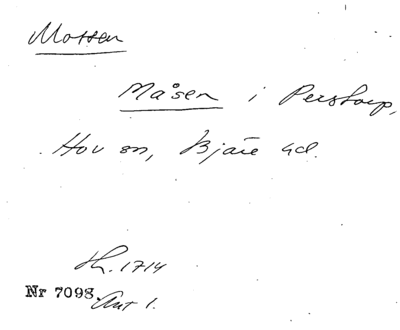 Mossen
Måsen i Perstorp,
Hov sn, Bjäre hd.
Th. 1714
Nr 7098. Ant 1.